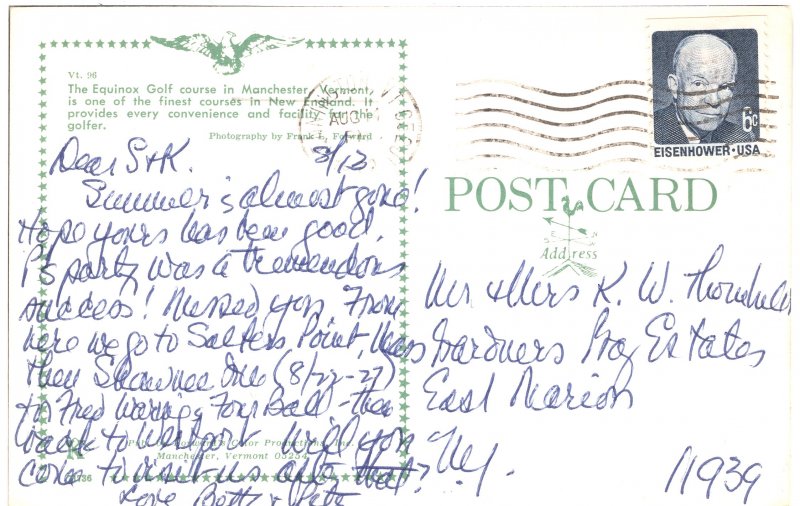 V1. 96
The Equinox Golf course in Manchester, Vermont,
is one of the finest courses in New England. It
provides every convenience and facility for the
golfer.
Photography by Frank L. Forward
AUG
6c
EISENHOWER·USA
POST CARD
Address
Dear S+K. 8/13
Summer is almost gone!
Hope yours has been good.
P's party was a tremendous
success! Missed you. From
here we go to Salters Point, Mass
then Shawnee Inn (8/22-27)
to Fred Waring Four Ball - then
back to Westport. Will you
come to visit us after that?
Love Betty + Pete
Pub. by Forward's Color Productions, Inc.
Manchester, Vermont 05254
Mr + Mrs K. W.
Gardners Bay Estates
East Marion
N.Y.
11939